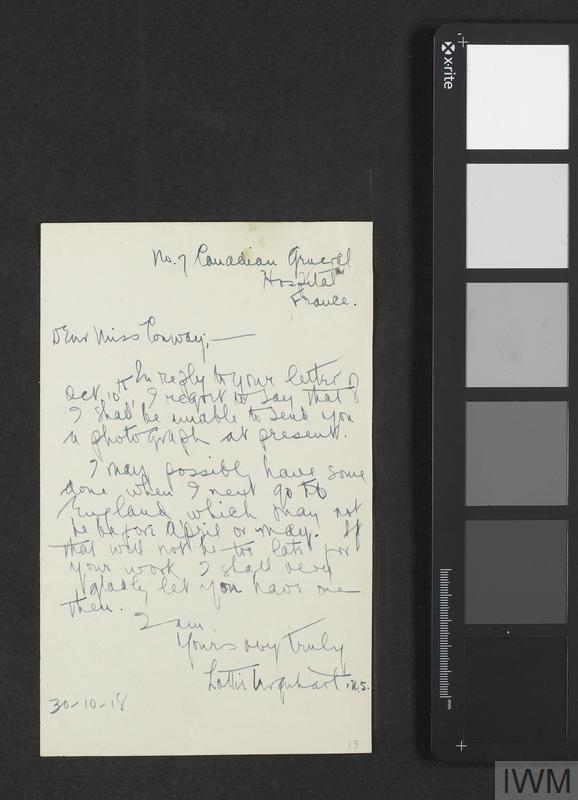 No. 7 Canadian General
Hospital
France.
Dear Miss Conway;—
In reply to your letter of
Oct. 10th, I regret to say that
I shall be unable to send you
a photograph at present.
I may possibly have some
done when I next go to
England which may not
be before April or May. If
that will not be too late for
your work I shall very
gladly let you have one
then.
I am
Yours very truly
Lottie Urquhart, N.S.
30-10-18
13
x·rite
mm
IWM